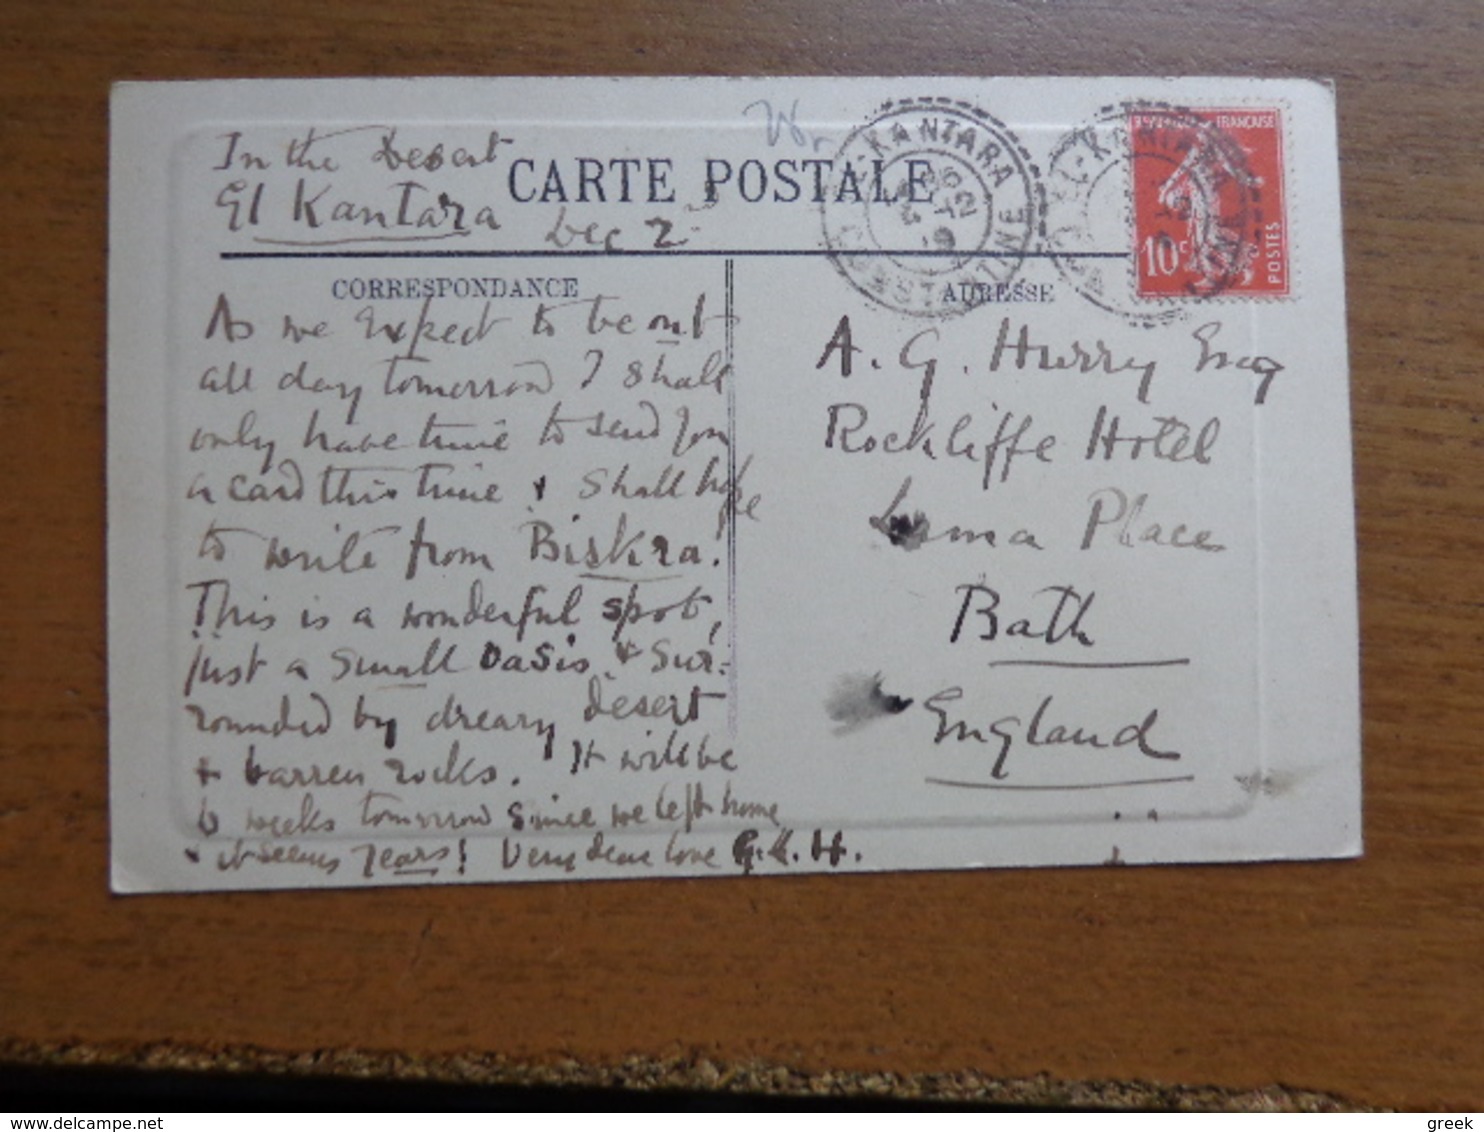 In the Desert
El Kantara Dec 2
CARTE POSTALE
CORRESPONDANCE
As we expect to be out
all day tomorrow I shall
only have time to send you
a card this time & shall hope
to write from Biskra!
This is a wonderful spot,
just a small oasis & sur-
rounded by dreary desert
& barren rocks. It will be
6 weeks tomorrow since we left home
& it seems years! Very dear love G.K.H.
EL-KANTARA
CONSTANTINE
EL-KANTARA
FRANÇAISE
10c
POSTES
ADRESSE
A. G. Hurry Esq
Rockliffe Hotel
Place
Bath
England
greek